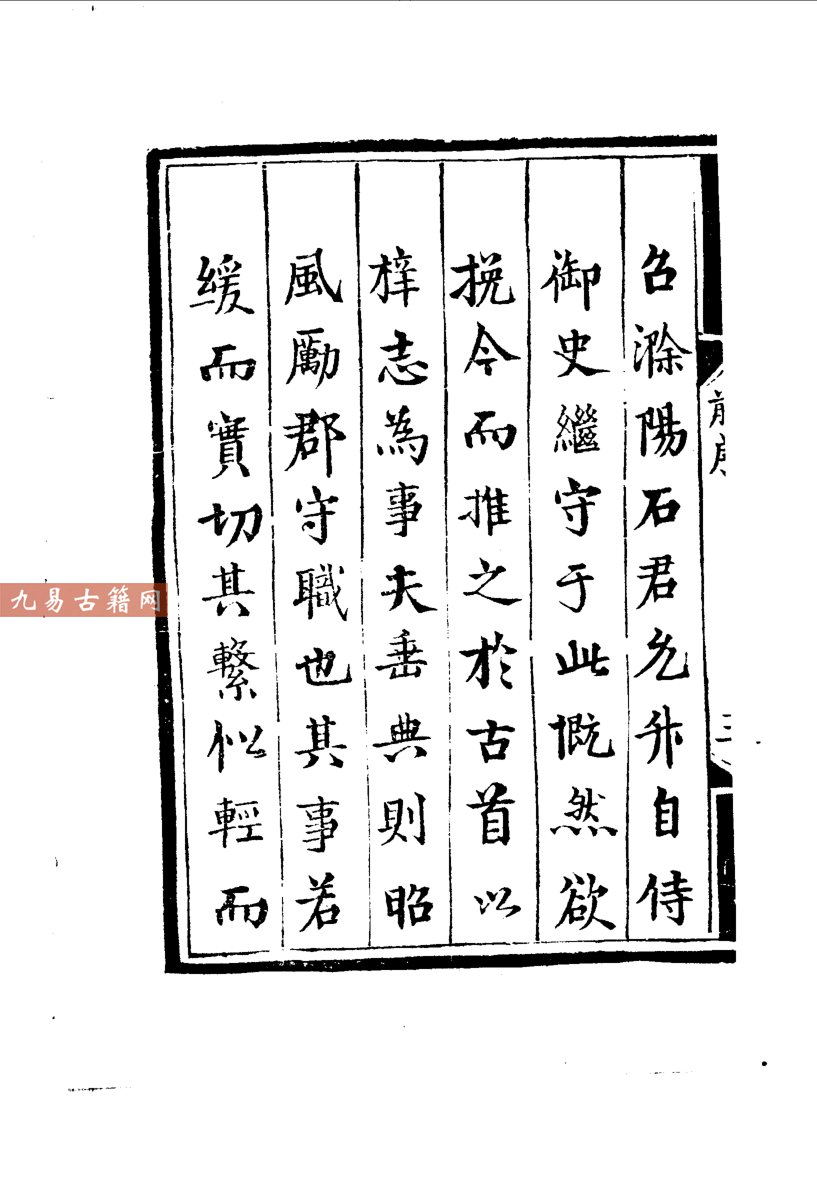 召滁陽石君允升自侍
御史繼守于此慨然欲
挽今而推之於古首以
梓志為事夫垂典則昭
風勵郡守職也其事若
緩而實切其繫似輕而
前序
三
九易古籍网